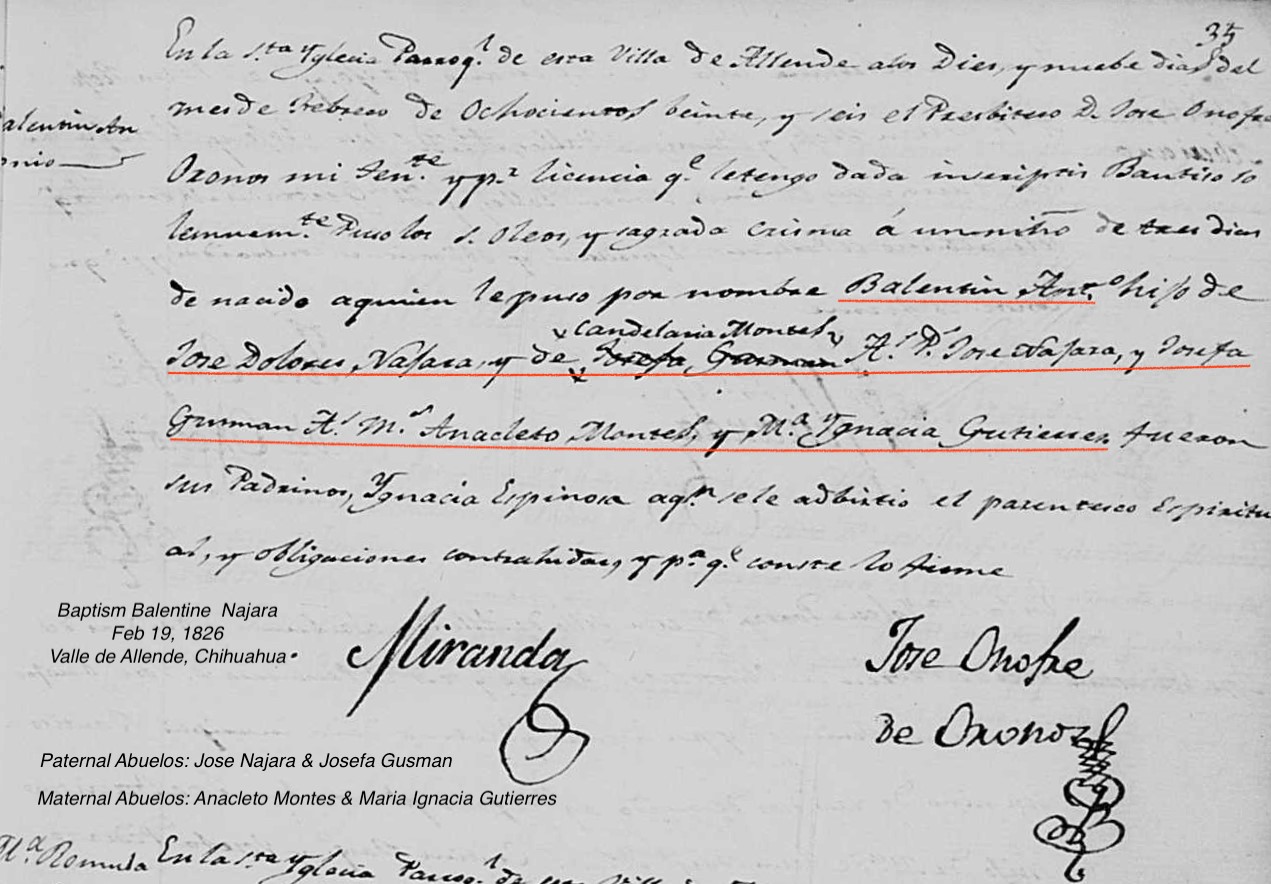 35
En la Sta Yglecia Parroql. de esta Villa de Allende alos Dies, y nuebe dias del
mes de Febrero de Ochocientos beinte, y seis el Presbitero D. Jose Onofre
alentin An
onio
Oronos mi Tente. y pr. licencia qe. letengo dada inscriptis Bautiso so
lemnemte. Puso los S. Oleos, y sagrada crisma á un niño de tres dias
de nacido aquien lepuso por nombre Balentin Anto. hijo de
candelaria Montes
Jose Dolores Najara, y de Josefa Gusman As. Ps. Jose Najara, y Josefa
Gusman As. Ms. Anacleto Montes, y Ma. Ygnacia Gutierres fueron
sus Padrinos, Ygnacia Espinosa aqn. sele adbirtio el parentesco Espiritu
al, y obligaciones contrahidas, y pa. qe. conste lo firme
Baptism Balentine Najara
Feb 19, 1826
Valle de Allende, Chihuahua
Miranda
Jose Onofre
de Oronoz
Paternal Abuelos: Jose Najara & Josefa Gusman
Maternal Abuelos: Anacleto Montes & Maria Ignacia Gutierres
Ma. Romula
En la Sta Yglecia Parroql. de